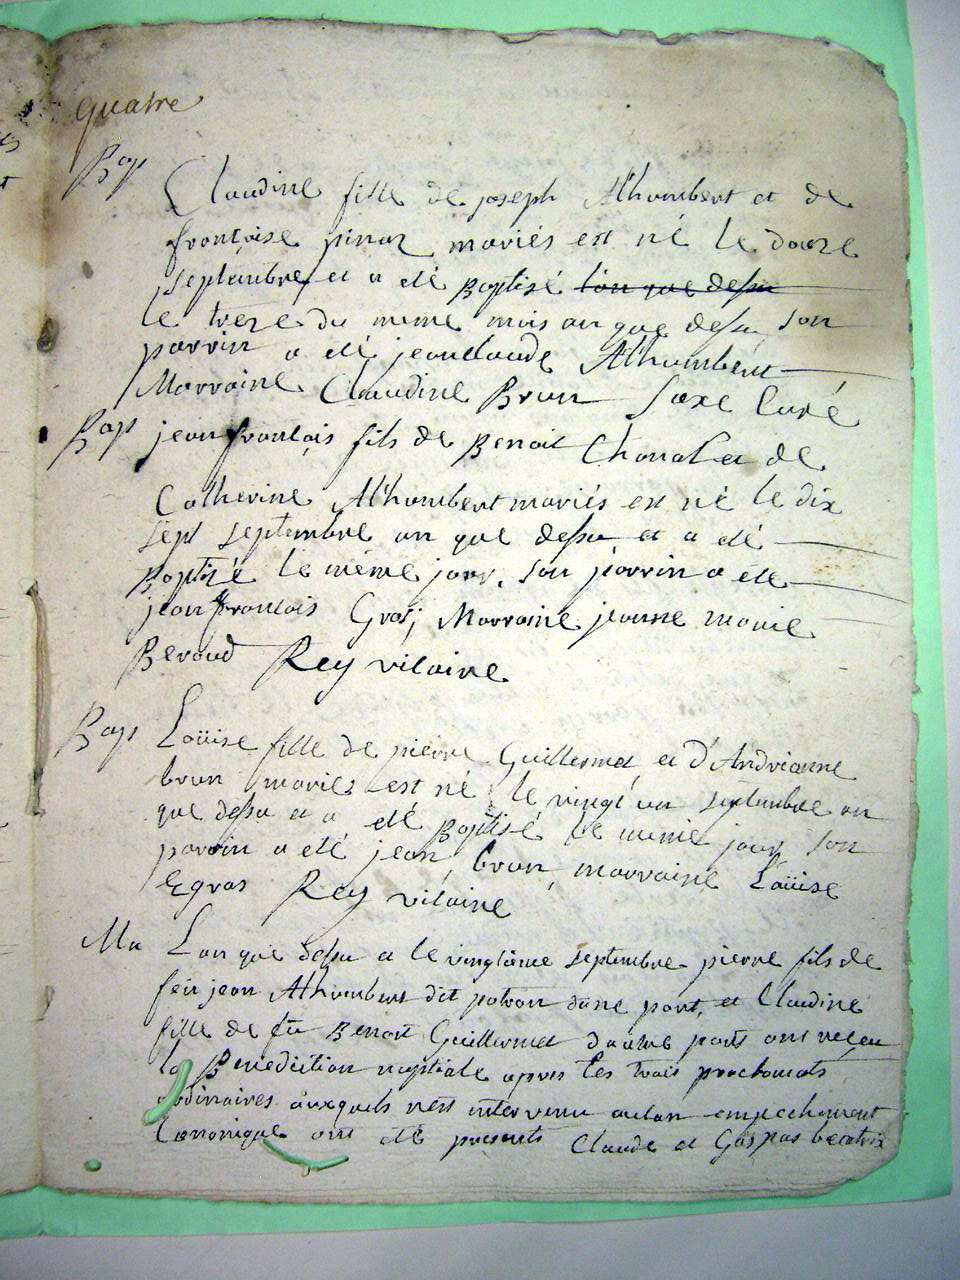 quatre
Bap
Claudine fille de joseph Alhumbert et de
françoise pinaz mariés est né le douze
septembre et a eté Baptisé l'an que dessu
le treze du meme mois an que dessu, son
parrin a eté jeanclaude Alhumbert
Marraine Claudine Brun Saxe Curé
Bap jean françois fils de Benoit Chanal et de
Catherine Alhumbert mariés est né le dix
sept septembre an que dessu et a eté
Baptisé le même jour, son parrin a ete
jean francois Gras, Marraine jeanne marie
Beraud Rey vicaire
Bap Loüise fille de pierre Guillermet et d'Andrianne
brun mariés est né le vingt un septembre an
que dessu et a eté Baptisé le meme jour son
parrin a eté jean brun, marraine Loüise
Egras Rey vicaire
Ma Lan que dessu et le vingtieme septembre pierre fils de
feu jean Alhumbert dit patran dune part, et Claudine
fille de fu Benoit Guillermet dautre part ont receu
la Benediction nuptiale apres les trois proclamats
ordinaires auxquels n'est intervenu aucun empechement
Canonique ont eté presents Claude et Gaspas beatrix